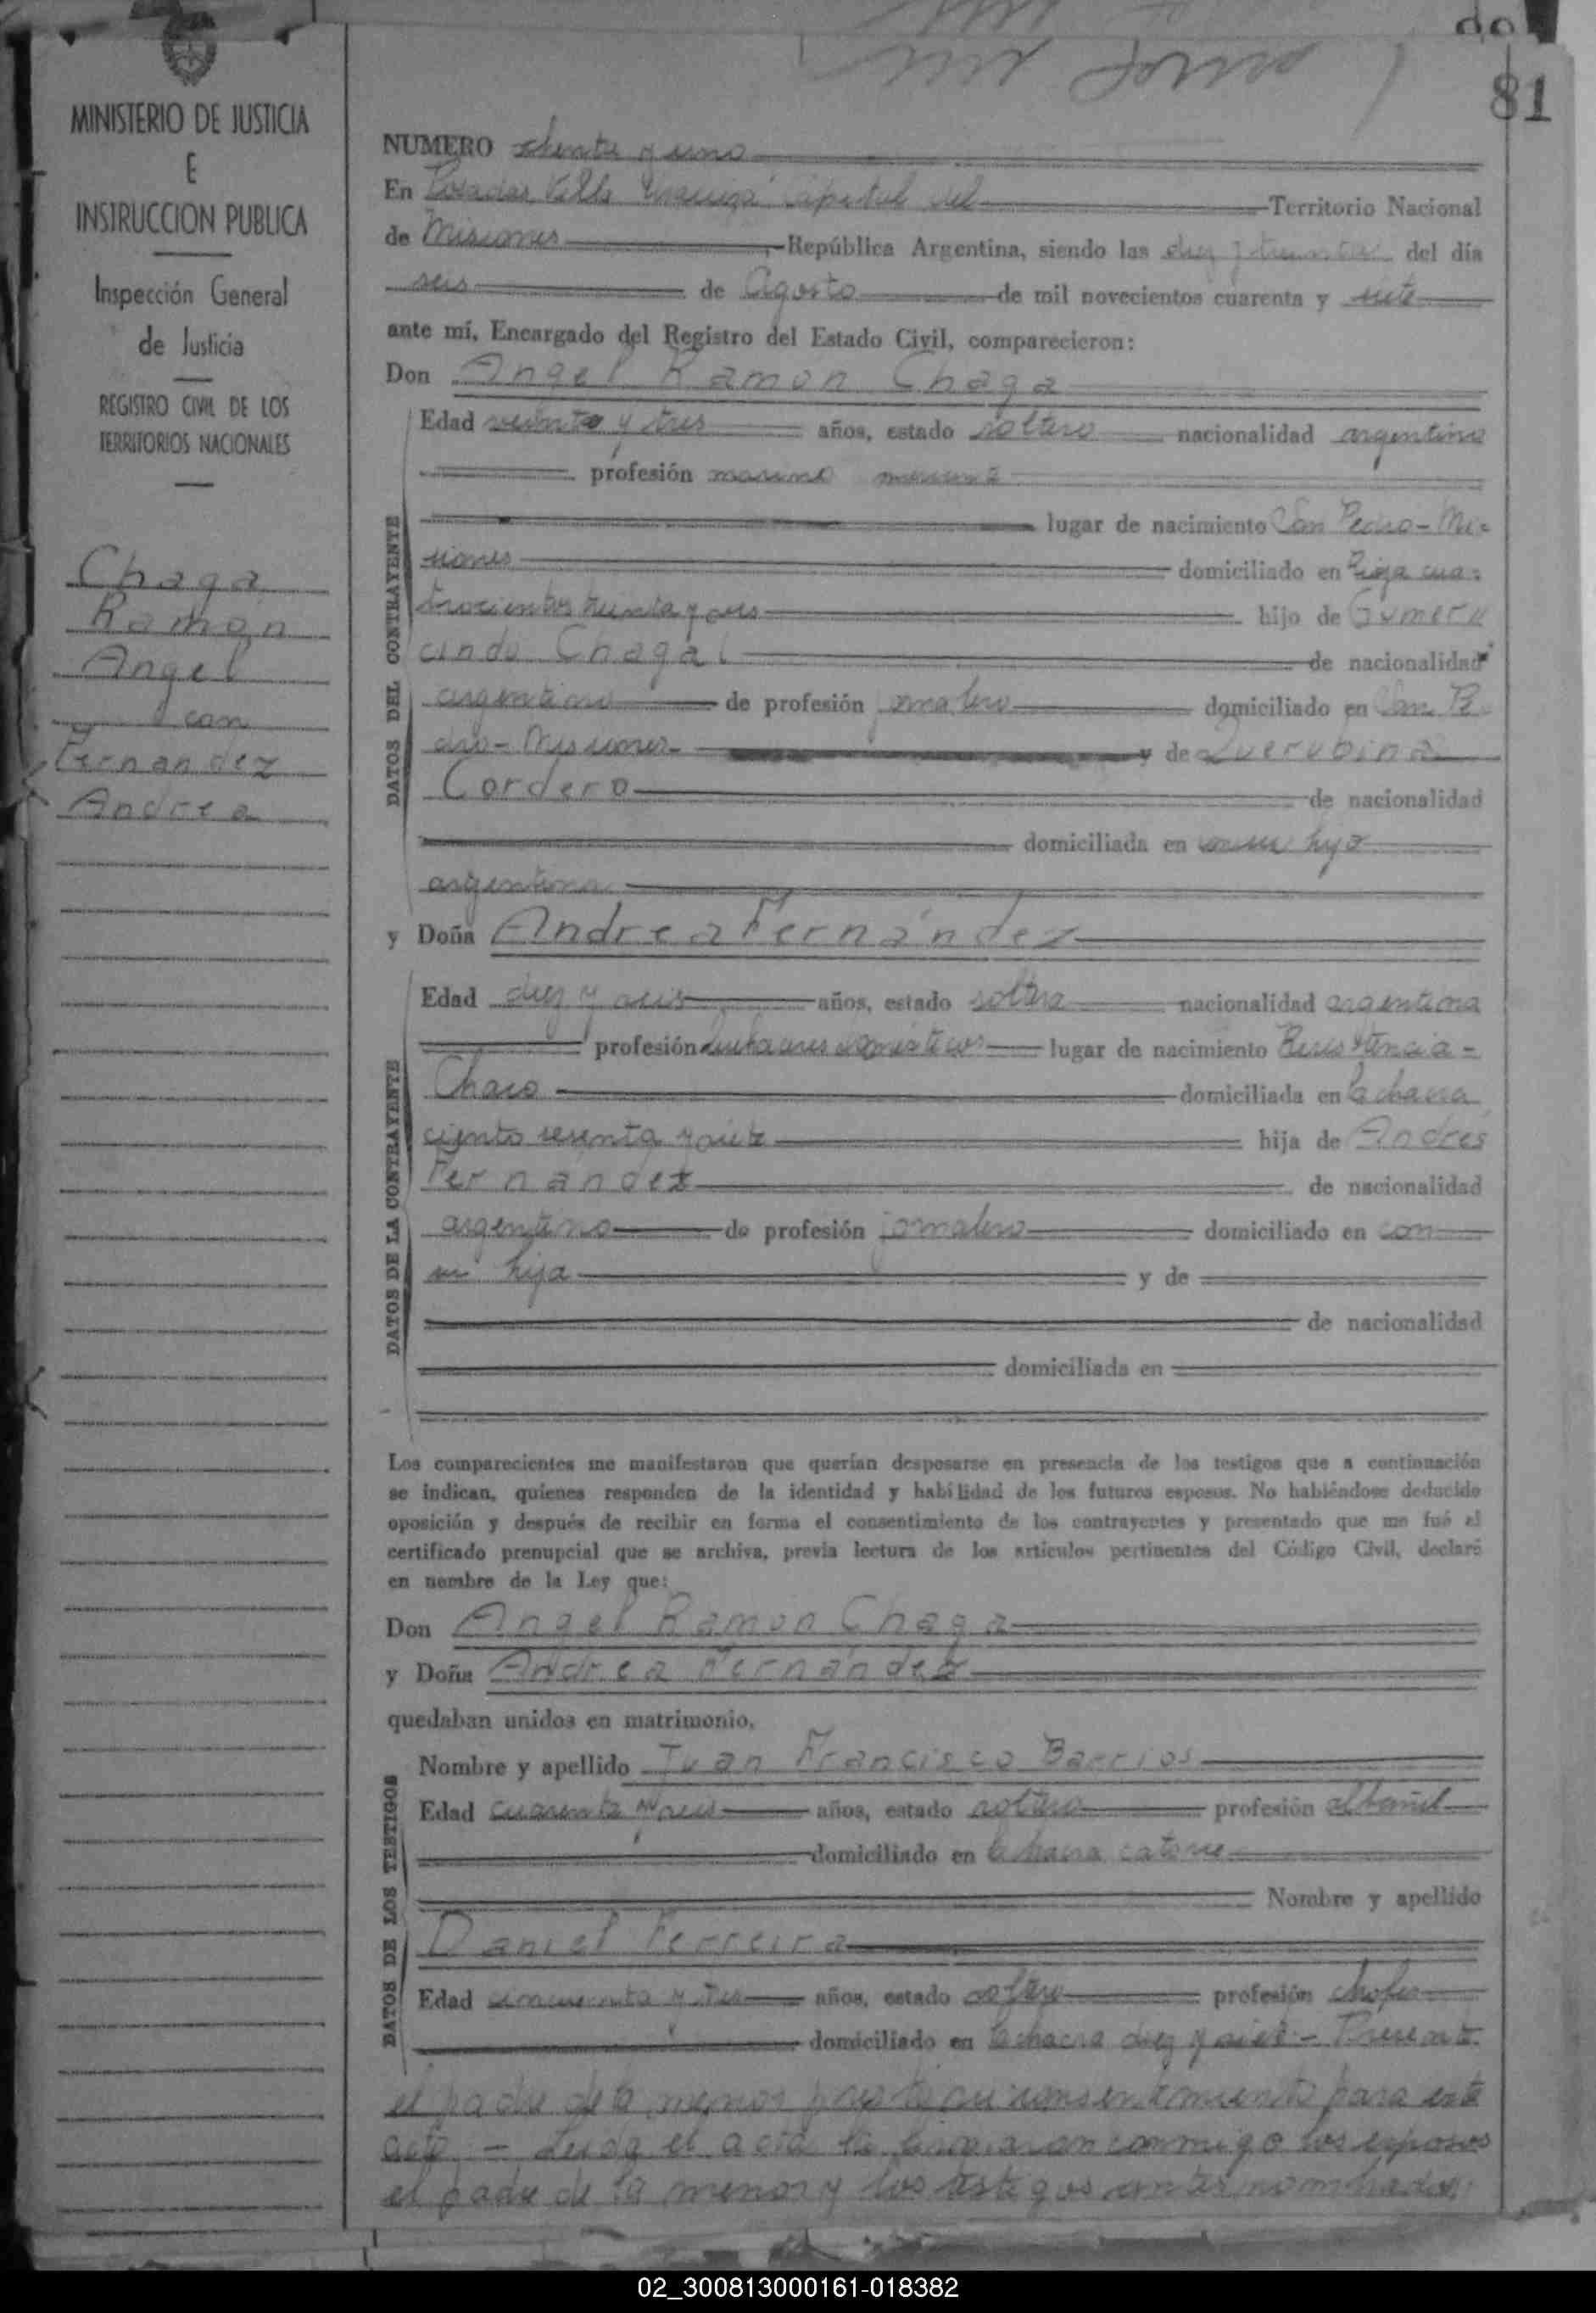 81
MINISTERIO DE JUSTICIA
E
INSTRUCCION PUBLICA
Inspección General
de Justicia
REGISTRO CIVIL DE LOS
TERRITORIOS NACIONALES
Chaga
Ramón
Angel
con
Fernandez
Andrea
NUMERO ochenta y uno
En Posadas Villa Urquiza capital del Territorio Nacional
de Misiones República Argentina, siendo las diez y treinta del día
seis de Agosto de mil novecientos cuarenta y siete
ante mí, Encargado del Registro del Estado Civil, comparecieron:
Don Angel Ramon Chaga
DATOS DEL CONTRAYENTE
Edad veinte y tres años, estado soltero nacionalidad argentina
profesión marino
lugar de nacimiento San Pedro - Mi-
siones domiciliado en
trocientos treinta y hijo de Gumer
cindo Chaga de nacionalidad
argentino de profesión jornalero domiciliado en San Pe
dro - Misiones y de Querubina
Cordero de nacionalidad
domiciliada en hijo
argentina
y Doña Andrea Fernández
DATOS DE LA CONTRAYENTE
Edad diez y seis años, estado soltera nacionalidad argentina
profesión quehaceres domésticos lugar de nacimiento Resistencia -
Chaco domiciliada en la chacra
ciento sesenta y siete hija de Andrés
Fernández de nacionalidad
argentino de profesión jornalero domiciliado en con
su hija y de
de nacionalidad
domiciliada en
Los comparecientes me manifestaron que querían desposarse en presencia de los testigos que a continuación
se indican, quienes responden de la identidad y habilidad de los futuros esposos. No habiéndose deducido
oposición y después de recibir en forma el consentimiento de los contrayentes y presentado que me fué el
certificado prenupcial que se archiva, previa lectura de los artículos pertinentes del Código Civil, declaré
en nombre de la Ley que:
Don Angel Ramon Chaga
y Doña Andrea Fernández
quedaban unidos en matrimonio.
DATOS DE LOS TESTIGOS
Nombre y apellido Juan Francisco Barrios
Edad cuarenta y seis años, estado soltero profesión albañil
domiciliado en la chacra catorce
Nombre y apellido
Daniel Ferreira
Edad cincuenta y tres años, estado soltero profesión chofer
domiciliado en la chacra diez y siete - Presente
el padre de la menor presta su consentimiento para este
acto - Leída el acta la firmaron conmigo los esposos
el padre de la menor y los testigos antes nombrados
02_300813000161-018382